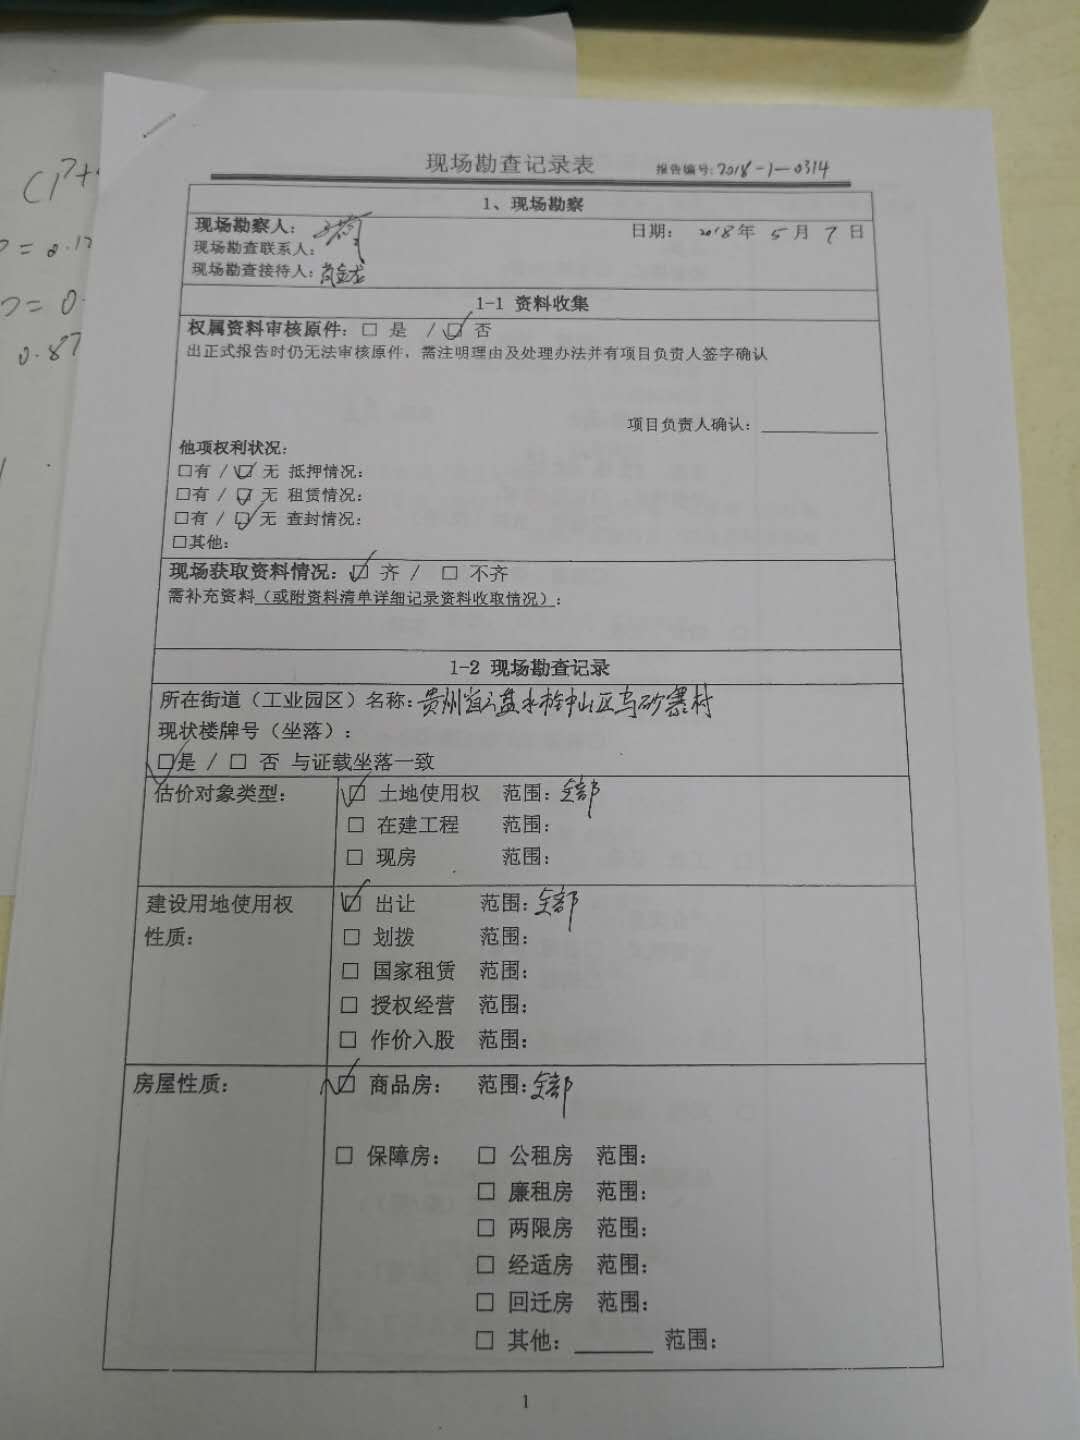 现场勘查记录表 报告编号:2018-1-0314
1、现场勘察
现场勘察人： 日期： 2018年 5月 7日
现场勘查联系人：
现场勘查接待人：
1-1 资料收集
权属资料审核原件：□ 是 / ☑ 否
出正式报告时仍无法审核原件，需注明理由及处理办法并有项目负责人签字确认
项目负责人确认：
他项权利状况：
□有 / ☑ 无 抵押情况：
□有 / ☑ 无 租赁情况：
□有 / ☑ 无 查封情况：
□其他：
现场获取资料情况：☑ 齐 / □ 不齐
需补充资料（或附资料清单详细记录资料收取情况）：
1-2 现场勘查记录
所在街道（工业园区）名称：贵州省六盘水钟山区乌砂寨村
现状楼牌号（坐落）：
☑是 / □ 否 与证载坐落一致
估价对象类型： ☑ 土地使用权 范围：全部
□ 在建工程 范围：
□ 现房 范围：
建设用地使用权性质： ☑ 出让 范围：全部
□ 划拨 范围：
□ 国家租赁 范围：
□ 授权经营 范围：
□ 作价入股 范围：
房屋性质： ☑ 商品房： 范围：全部
□ 保障房： □ 公租房 范围：
□ 廉租房 范围：
□ 两限房 范围：
□ 经适房 范围：
□ 回迁房 范围：
□ 其他：______ 范围：
1